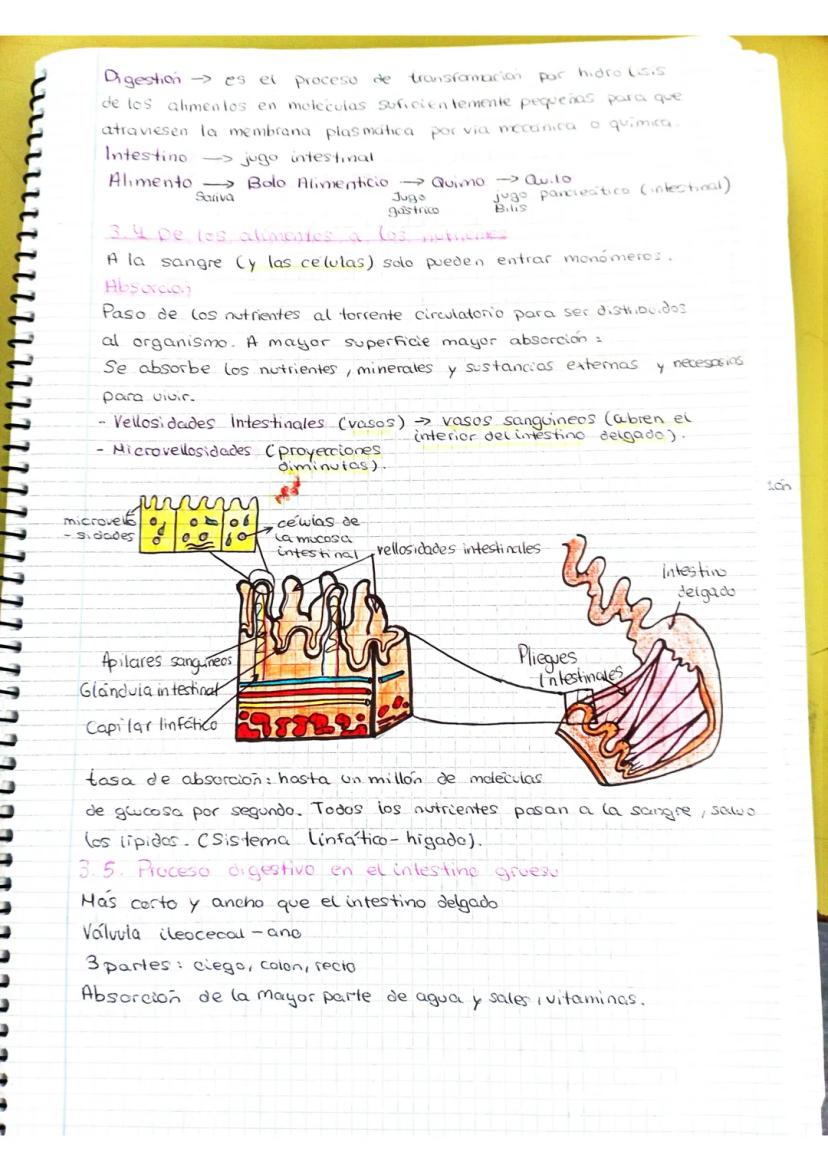 Digestión → es el proceso de transformación por hidrólisis
de los alimentos en moléculas suficientemente pequeñas para que
atraviesen la membrana plasmática por vía mecánica o química.
Intestino → jugo intestinal
Alimento → Bolo Alimenticio → Quimo → Quilo
Saliva Jugo gástrico jugo pancreático (intestinal) Bilis
3.4 De los alimentos a los nutrientes
A la sangre (y las células) solo pueden entrar monómeros.
Absorción
Paso de los nutrientes al torrente circulatorio para ser distribuidos
al organismo. A mayor superficie mayor absorción:
Se absorbe los nutrientes, minerales y sustancias externas y necesarias
para vivir.
- Vellosidades Intestinales (vasos) → vasos sanguineos (abren el
interior del intestino delgado).
- Microvellosidades (proyecciones
diminutas).
ión
microvello
-sidades
células de
la mucosa
intestinal
vellosidades intestinales
intestino
delgado
Pliegues
Intestinales
Apilares sanguineos
Glándula intestinal
Capilar linfático
tasa de absorción: hasta un millón de moleculas
de glucosa por segundo. Todos los nutrientes pasan a la sangre, salvo
los lípidos. (Sistema Linfático-hígado).
3.5. Proceso digestivo en el intestino grueso
Más corto y ancho que el intestino delgado
Válvula ileocecal - ano
3 partes: ciego, colon, recto
Absorción de la mayor parte de agua y sales, vitaminas.